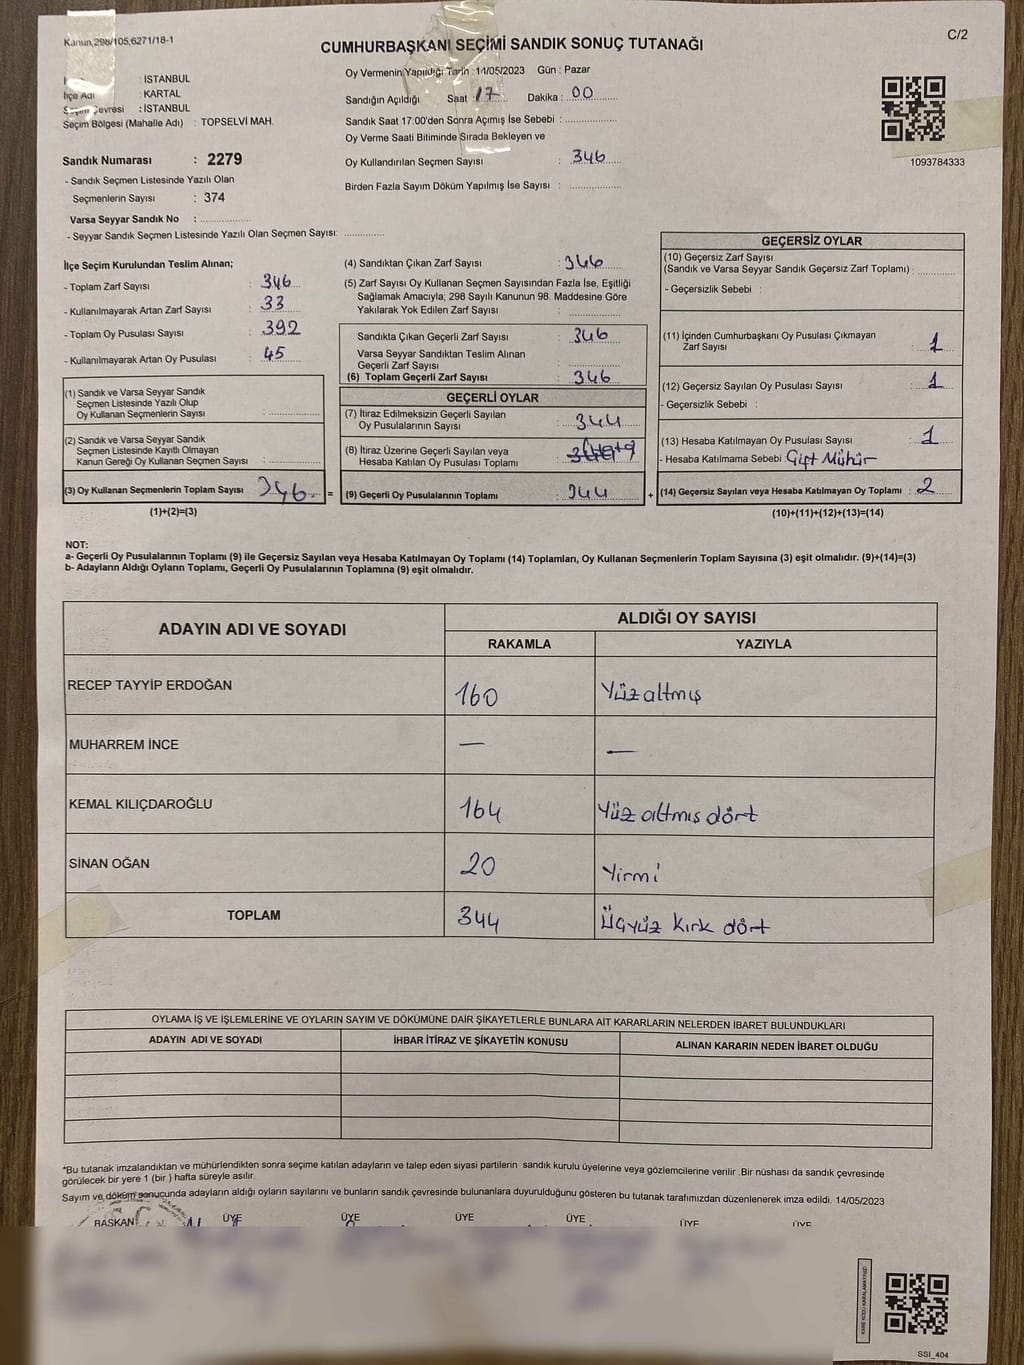 Kanun,298/105,6271/18-1
C/2
CUMHURBAŞKANI SEÇİMİ SANDIK SONUÇ TUTANAĞI
: İSTANBUL
İlçe Adı : KARTAL
Seçim Çevresi : İSTANBUL
Seçim Bölgesi (Mahalle Adı) : TOPSELVİ MAH.
Oy Vermenin Yapıldığı Tarih : 14/05/2023 Gün : Pazar
Sandığın Açıldığı Saat : 17 Dakika : 00
Sandık Saat 17:00'den Sonra Açılmış İse Sebebi :
Oy Verme Saati Bitiminde Sırada Bekleyen ve
Oy Kullandırılan Seçmen Sayısı : 346
Birden Fazla Sayım Döküm Yapılmış İse Sayısı :
1093784333
Sandık Numarası : 2279
- Sandık Seçmen Listesinde Yazılı Olan
Seçmenlerin Sayısı : 374
Varsa Seyyar Sandık No :
- Seyyar Sandık Seçmen Listesinde Yazılı Olan Seçmen Sayısı:
İlçe Seçim Kurulundan Teslim Alınan;
- Toplam Zarf Sayısı : 346
- Kullanılmayarak Artan Zarf Sayısı : 33
- Toplam Oy Pusulası Sayısı : 392
- Kullanılmayarak Artan Oy Pusulası : 45
(1) Sandık ve Varsa Seyyar Sandık
Seçmen Listesinde Yazılı Olup
Oy Kullanan Seçmenlerin Sayısı :
(2) Sandık ve Varsa Seyyar Sandık
Seçmen Listesinde Kayıtlı Olmayan
Kanun Gereği Oy Kullanan Seçmen Sayısı :
(3) Oy Kullanan Seçmenlerin Toplam Sayısı : 346 =
(1)+(2)=(3)
(4) Sandıktan Çıkan Zarf Sayısı : 346
(5) Zarf Sayısı Oy Kullanan Seçmen Sayısından Fazla İse, Eşitliği
Sağlamak Amacıyla; 298 Sayılı Kanunun 98. Maddesine Göre
Yakılarak Yok Edilen Zarf Sayısı :
Sandıkta Çıkan Geçerli Zarf Sayısı : 346
Varsa Seyyar Sandıktan Teslim Alınan
Geçerli Zarf Sayısı :
(6) Toplam Geçerli Zarf Sayısı : 346
GEÇERLİ OYLAR
(7) İtiraz Edilmeksizin Geçerli Sayılan
Oy Pusulalarının Sayısı : 344
(8) İtiraz Üzerine Geçerli Sayılan veya
Hesaba Katılan Oy Pusulası Toplamı :
(9) Geçerli Oy Pusulalarının Toplamı : 344 +
GEÇERSİZ OYLAR
(10) Geçersiz Zarf Sayısı
(Sandık ve Varsa Seyyar Sandık Geçersiz Zarf Toplamı) :
- Geçersizlik Sebebi :
(11) İçinden Cumhurbaşkanı Oy Pusulası Çıkmayan
Zarf Sayısı : 1
(12) Geçersiz Sayılan Oy Pusulası Sayısı : 1
- Geçersizlik Sebebi :
(13) Hesaba Katılmayan Oy Pusulası Sayısı : 1
- Hesaba Katılmama Sebebi : Çift Mühür
(14) Geçersiz Sayılan veya Hesaba Katılmayan Oy Toplamı : 2
(10)+(11)+(12)+(13)=(14)
NOT:
a- Geçerli Oy Pusulalarının Toplamı (9) ile Geçersiz Sayılan veya Hesaba Katılmayan Oy Toplamı (14) Toplamları, Oy Kullanan Seçmenlerin Toplam Sayısına (3) eşit olmalıdır. (9)+(14)=(3)
b- Adayların Aldığı Oyların Toplamı, Geçerli Oy Pusulalarının Toplamına (9) eşit olmalıdır.
ADAYIN ADI VE SOYADI
ALDIĞI OY SAYISI
RAKAMLA YAZIYLA
RECEP TAYYİP ERDOĞAN 160 Yüzaltmış
MUHARREM İNCE — —
KEMAL KILIÇDAROĞLU 164 Yüz altmış dört
SİNAN OĞAN 20 Yirmi
TOPLAM 344 Üçyüz kırk dört
OYLAMA İŞ VE İŞLEMLERİNE VE OYLARIN SAYIM VE DÖKÜMÜNE DAİR ŞİKAYETLERLE BUNLARA AİT KARARLARIN NELERDEN İBARET BULUNDUKLARI
ADAYIN ADI VE SOYADI İHBAR İTİRAZ VE ŞİKAYETİN KONUSU ALINAN KARARIN NEDEN İBARET OLDUĞU
*Bu tutanak imzalandıktan ve mühürlendikten sonra seçime katılan adayların ve talep eden siyasi partilerin sandık kurulu üyelerine veya gözlemcilerine verilir .Bir nüshası da sandık çevresinde
görülecek bir yere 1 (bir) hafta süreyle asılır.
Sayım ve döküm sonucunda adayların aldığı oyların sayılarını ve bunların sandık çevresinde bulunanlara duyurulduğunu gösteren bu tutanak tarafımızdan düzenlenerek imza edildi. 14/05/2023
BAŞKAN ÜYE ÜYE ÜYE ÜYE ÜYE ÜYE
KARE KODU KARALAMAYINIZ!
SSI_404